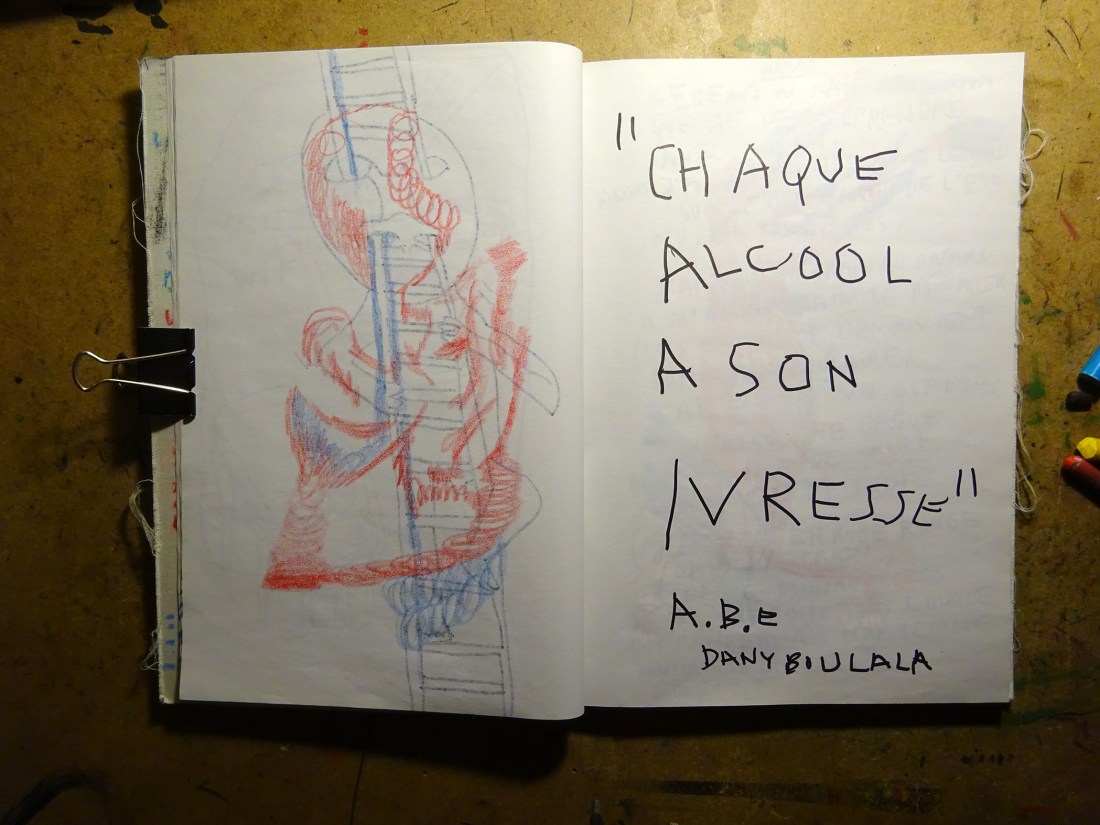 "CHAQUE
ALCOOL
A SON
IVRESSE"
A.B.E
DANY BOULALA